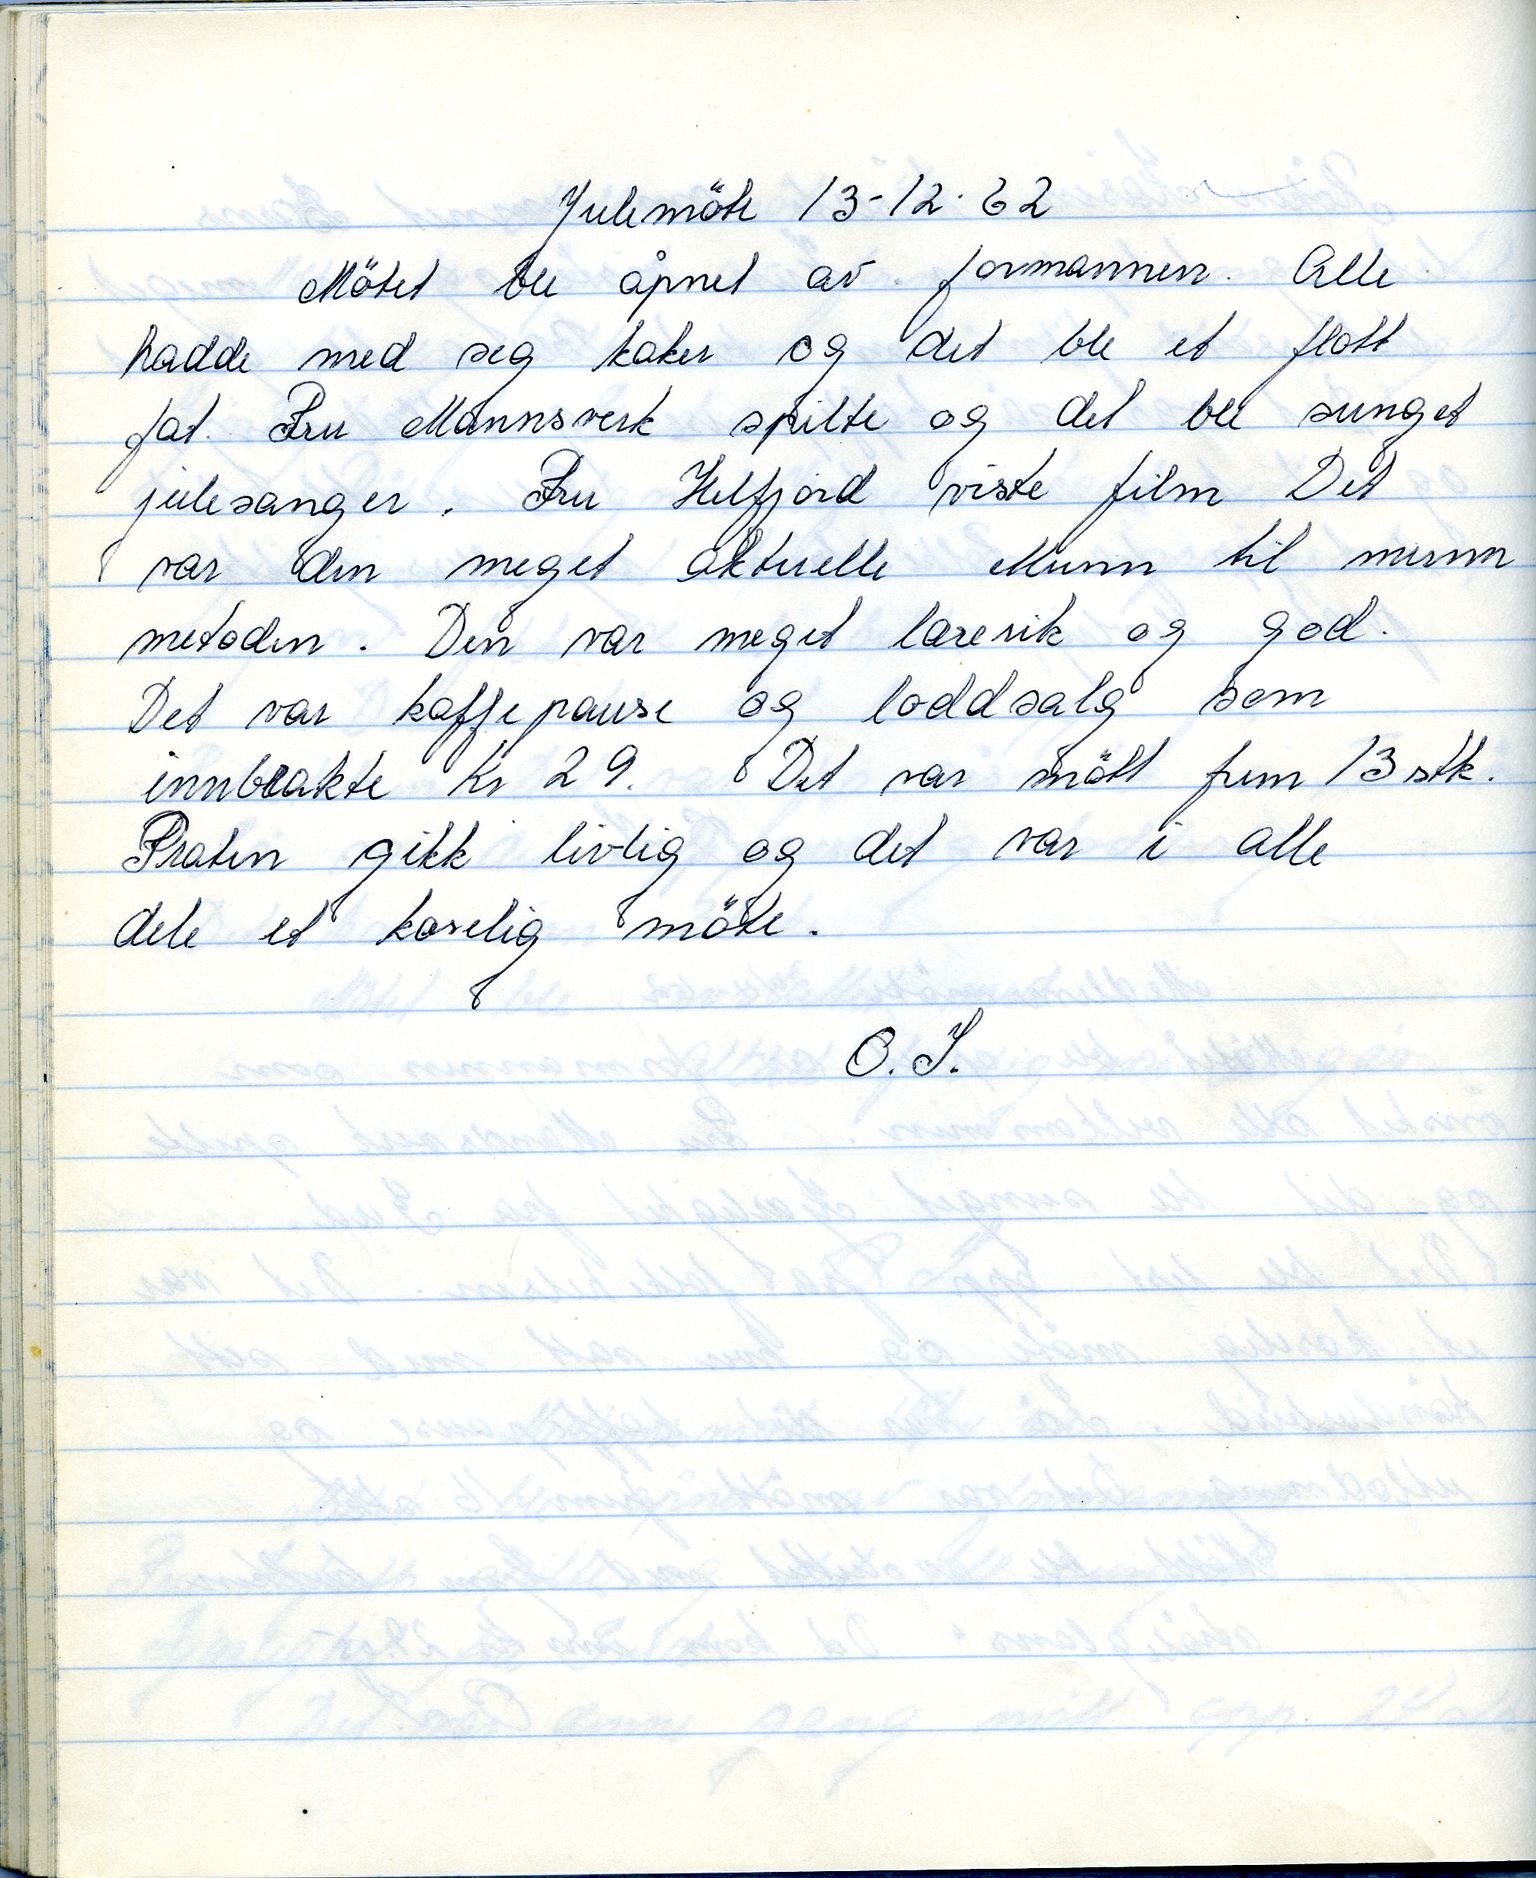 Julemöte 13-12-62
Mötet ble åpnet av formannen. Alle
hadde med seg kaker og det ble et flott
fat. Fru Mannsverk spilte og det ble sunget
julesanger. Fru Helfjord viste film Det
var den meget aktuelle Munn til munn
metoden. Den var meget lærerik og god.
Det var kaffepause og loddsalg som
innbrakte Kr 29. Det var mött frem 13 stk.
Praten gikk livlig og det var i alle
dele et koselig möte.
O. S.